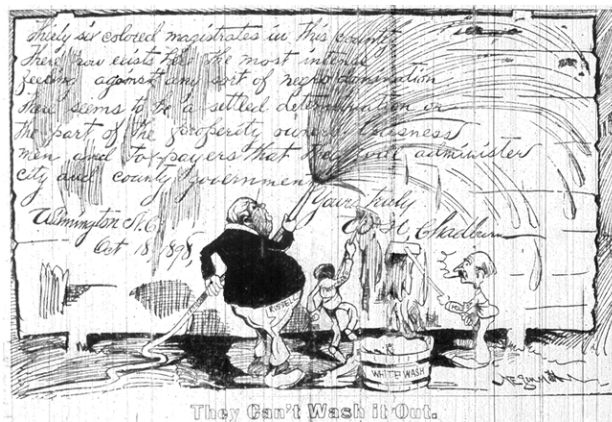 Thirty six colored magistrates in this county
There now exists here the most intense
feeling against any sort of negro domination
There seems to be a settled determination on
the part of the property owners business
men and taxpayers that they will administer
city and county government
Yours truly
W. H. Chadbourn
Wilmington N.C.
Oct 18 1898
RUSSELL
WHITEWASH
They Can't Wash it Out.